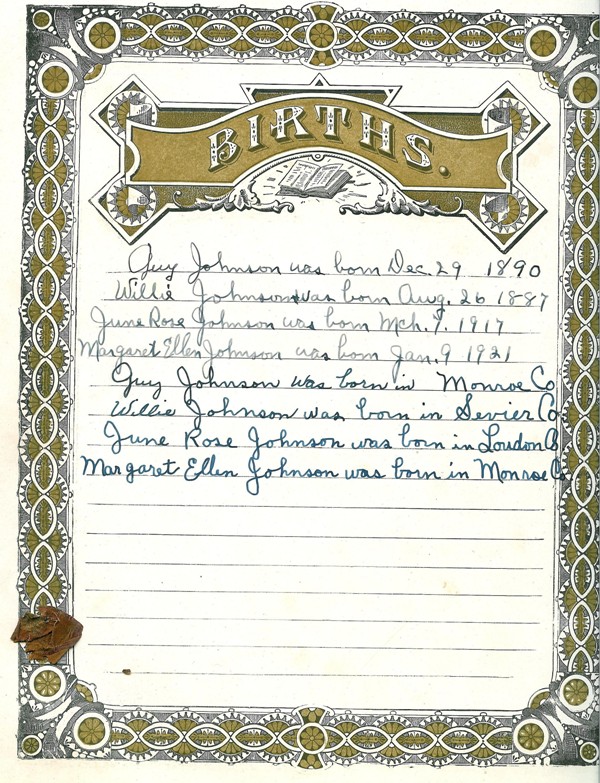 BIRTHS.
Guy Johnson was born Dec. 29 1890
Willie Johnson was born Aug. 26 1887
June Rose Johnson was born Mch. 7. 1917
Margaret Ellen Johnson was born Jan. 9 1921
Guy Johnson was born in Monroe Co
Willie Johnson was born in Sevier Co
June Rose Johnson was born in Loudon Co
Margaret Ellen Johnson was born in Monroe Co.